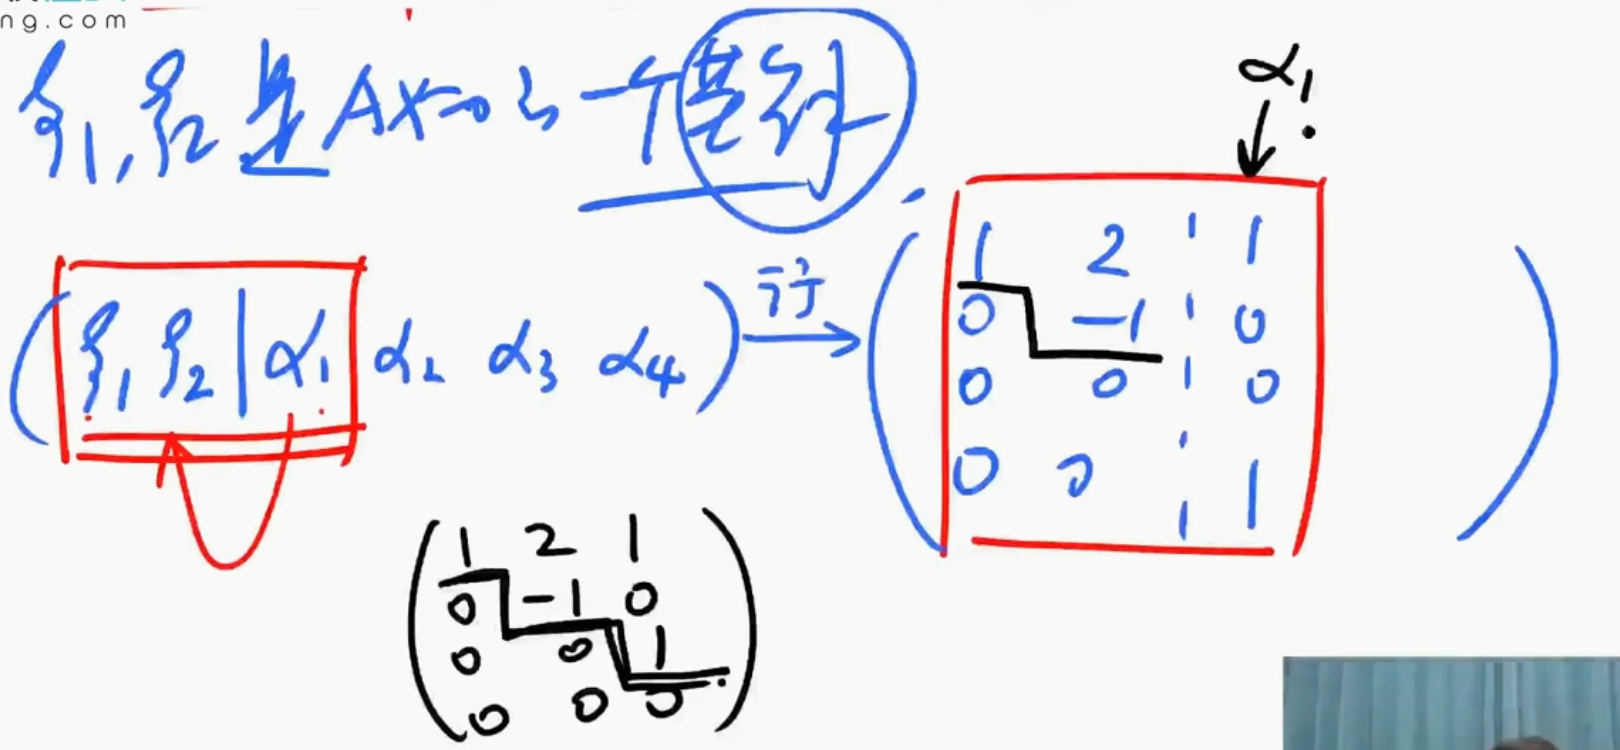 ng.com
ξ1, ξ2 是 AX=0 的 一个基础
α1
(ξ1 ξ2 | α1 α2 α3 α4) 行→
1 2 1
0 -1 0
0 0 0
0 0 1
1 2 1
0 -1 0
0 0 1
0 0 0